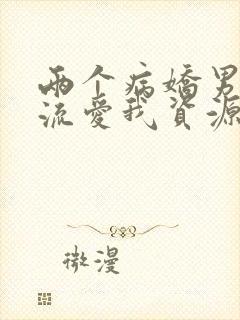 兩个病嬌男
流愛我資源
微漫